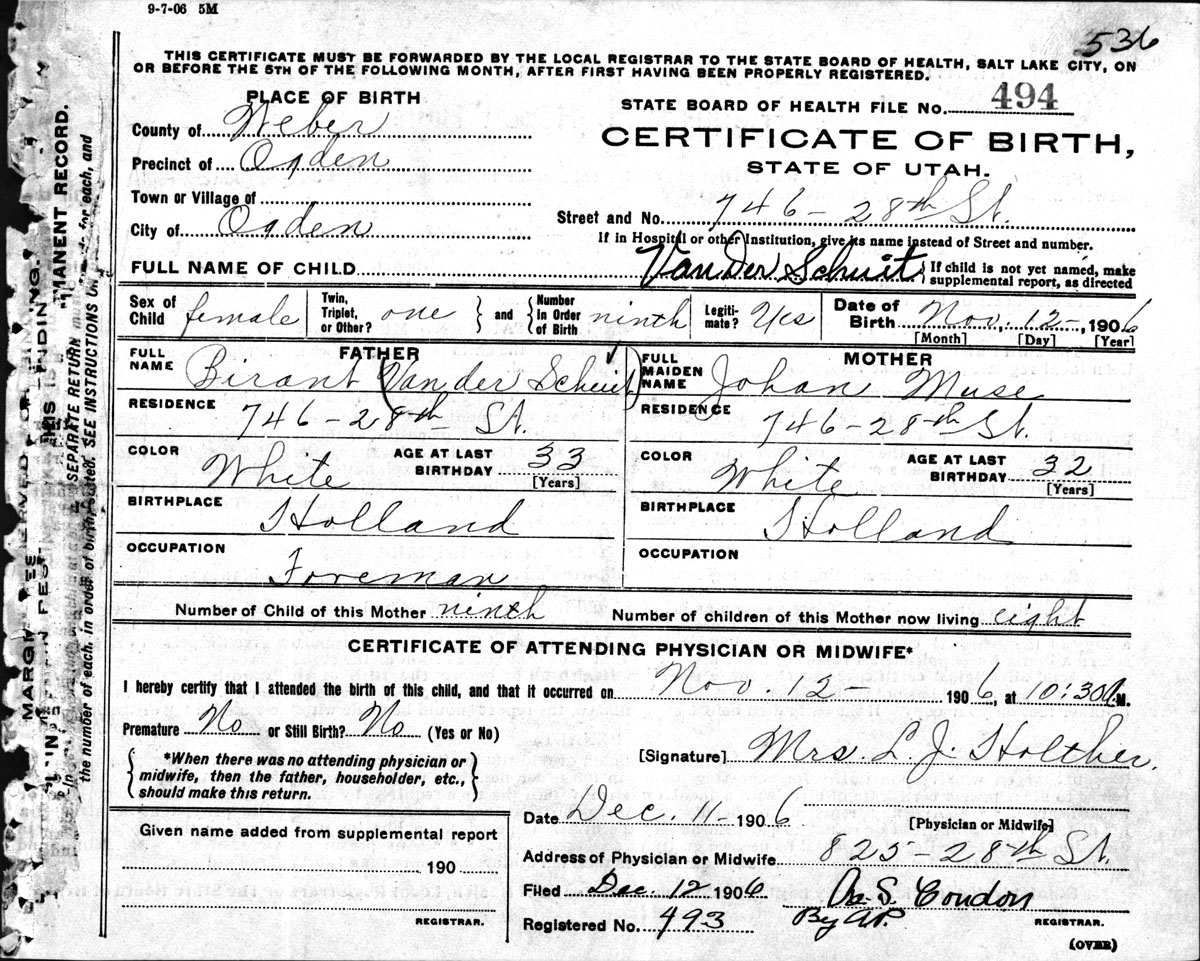 9-7-06 5M
536
THIS CERTIFICATE MUST BE FORWARDED BY THE LOCAL REGISTRAR TO THE STATE BOARD OF HEALTH, SALT LAKE CITY, ON
OR BEFORE THE 5TH OF THE FOLLOWING MONTH, AFTER FIRST HAVING BEEN PROPERLY REGISTERED.
PLACE OF BIRTH
County of Weber
Precinct of Ogden
Town or Village of
City of Ogden
STATE BOARD OF HEALTH FILE No. 494
CERTIFICATE OF BIRTH,
STATE OF UTAH.
Street and No. 746 - 28th St.
If in Hospital or other Institution, give its name instead of Street and number.
FULL NAME OF CHILD Van Der Schuit { If child is not yet named, make
supplemental report, as directed
Sex of Child female
Twin, Triplet, or Other? one } and { Number in Order of Birth ninth
Legitimate? Yes
Date of Birth Nov. 12-, 1906
[Month] [Day] [Year]
FATHER
FULL NAME Birant (Van der Schuit)
RESIDENCE 746 - 28th St.
COLOR White AGE AT LAST BIRTHDAY 33
[Years]
BIRTHPLACE Holland
OCCUPATION Foreman
MOTHER
FULL MAIDEN NAME Johan Muse
RESIDENCE 746 - 28th St.
COLOR White AGE AT LAST BIRTHDAY 32
[Years]
BIRTHPLACE Holland
OCCUPATION
Number of Child of this Mother ninth Number of children of this Mother now living eight
CERTIFICATE OF ATTENDING PHYSICIAN OR MIDWIFE*
I hereby certify that I attended the birth of this child, and that it occurred on Nov. 12- 1906, at 10:30 M.
Premature No or Still Birth? No (Yes or No)
{ *When there was no attending physician or
midwife, then the father, householder, etc.,
should make this return. }
[Signature] Mrs. L. J. Holther.
[Physician or Midwife]
Date Dec. 11- 1906
Address of Physician or Midwife 825 - 28th St.
Filed Dec. 12 1906 S. Condon
By A.P.
REGISTRAR.
Registered No. 493
(OVER)
Given name added from supplemental report
190
REGISTRAR.
MANENT RECORD.
SEPARATE RETURN for each, and
the number of each, in order of birth, stated. SEE INSTRUCTIONS